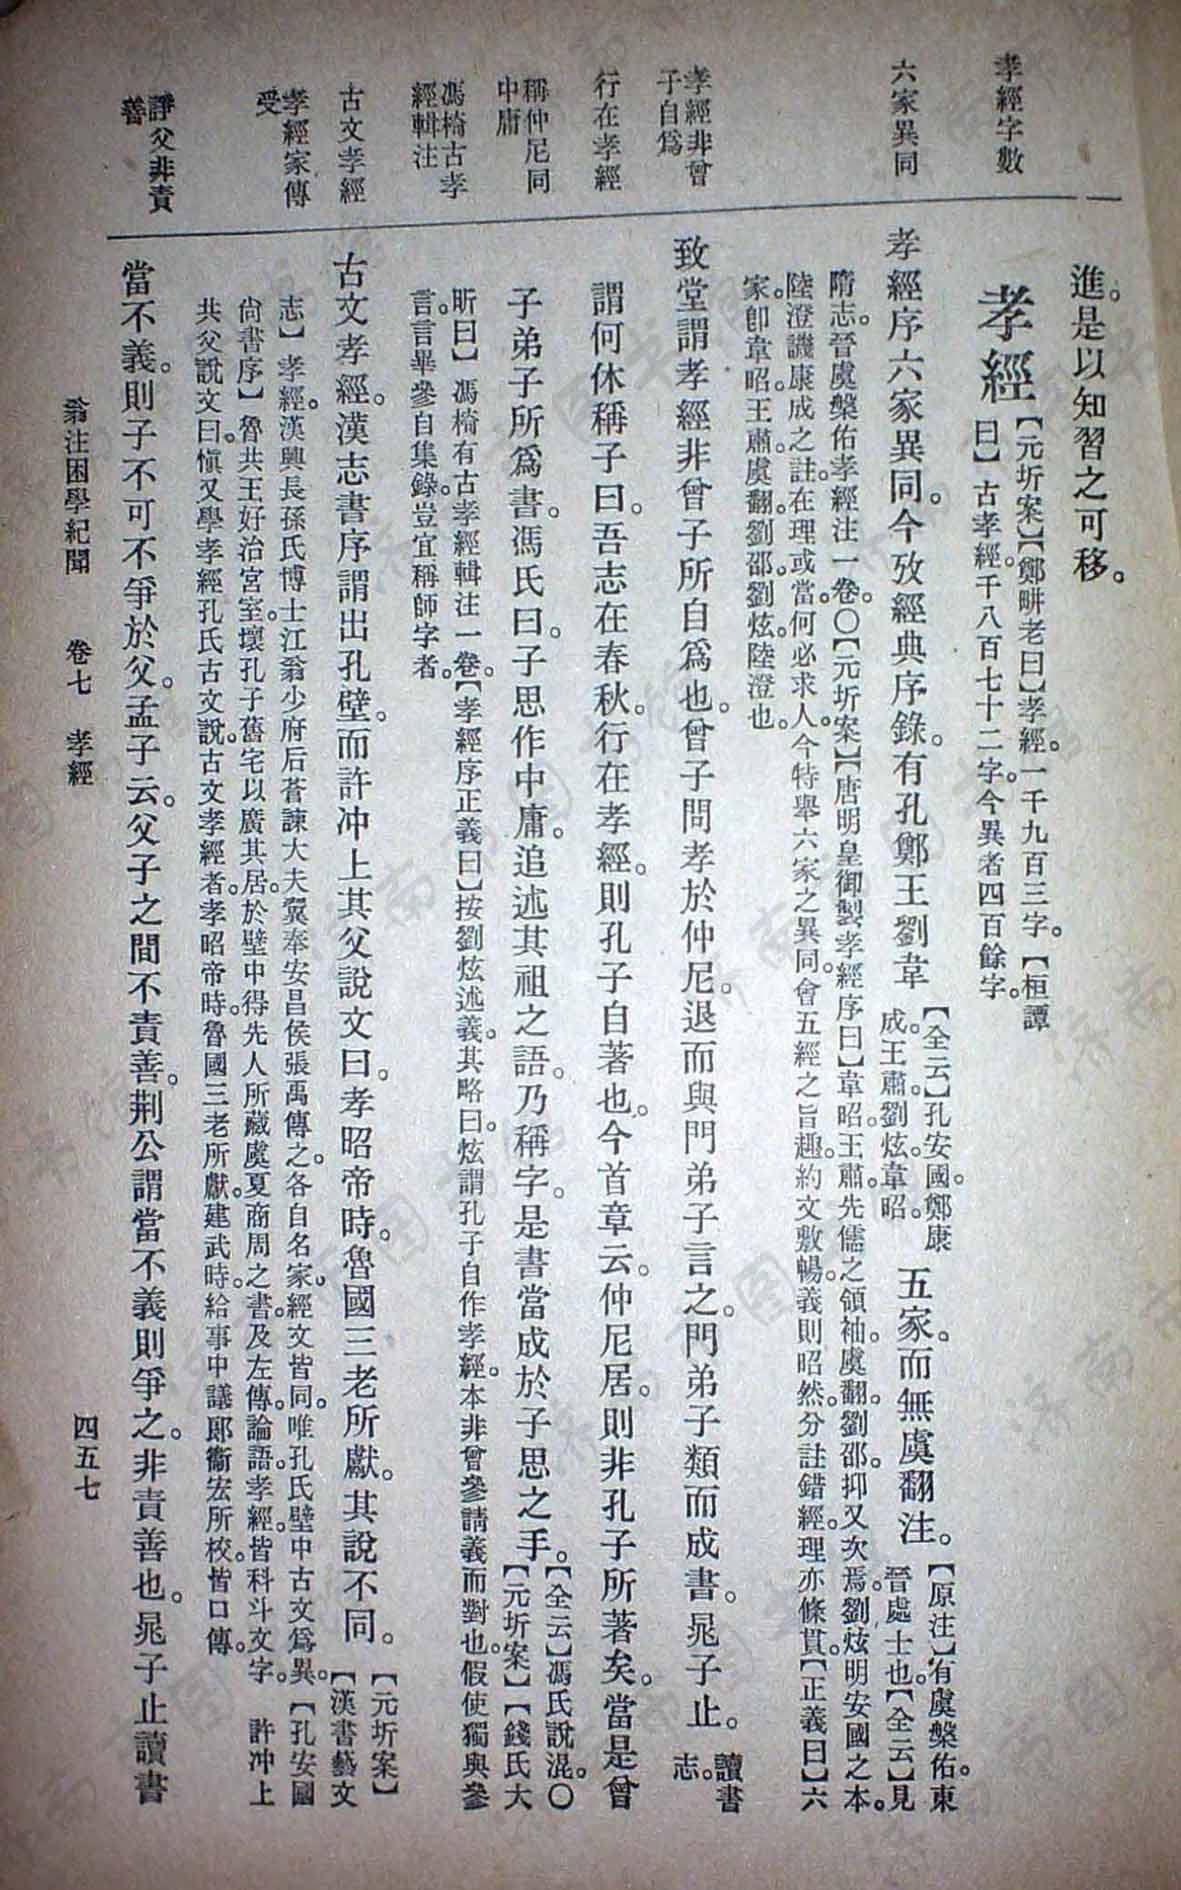 孝經字數
六家異同
孝經非曾
子自爲
行在孝經
稱仲尼同
中庸
馮椅古孝
經輯注
古文孝經
孝經家傳
受
諍父非責
善
進。是以知習之可移。
孝經【元圻案】【鄭畊老曰】孝經。一千九百三字。【桓譚
曰】古孝經。千八百七十二字。今異者四百餘字。
孝經序六家異同。今攷經典序錄。有孔鄭王劉韋【全云】孔安國。鄭康
成。王肅。劉炫。韋昭。五家。而無虞翻注。【原注】有虞槃佑。東
晉處士也。【全云】見
隋志。晉虞槃佑孝經注一卷。〇【元圻案】【唐明皇御製孝經序曰】韋昭。王肅。先儒之領袖。虞翻。劉邵。抑又次焉。劉炫明安國之本。
陸澄譏康成之註。在理或當。何必求人。今特舉六家之異同。會五經之旨趣。約文敷暢。義則昭然。分註錯經。理亦條貫。【正義曰】六
家。卽韋昭。王肅。虞翻。劉邵。劉炫。陸澄也。
致堂謂孝經非曾子所自爲也。曾子問孝於仲尼。退而與門弟子言之。門弟子類而成書。晁子止。讀書
志。
謂何休稱子曰。吾志在春秋。行在孝經。則孔子自著也。今首章云。仲尼居。則非孔子所著矣。當是曾
子弟子所爲書。馮氏曰。子思作中庸。追述其祖之語。乃稱字。是書當成於子思之手。【全云】馮氏說混。〇
【元圻案】【錢氏大
昕曰】馮椅有古孝經輯注一卷。【孝經序正義曰】按劉炫述義。其略曰。炫謂孔子自作孝經。本非曾參請義而對也。假使獨與參
言。言畢參自集錄。豈宜稱師字者。
古文孝經。漢志書序謂出孔壁。而許冲上其父說文曰。孝昭帝時。魯國三老所獻。其說不同。【元圻案】
【漢書藝文
志】孝經。漢興長孫氏博士江翁少府后蒼諫大夫翼奉安昌侯張禹傳之。各自名家。經文皆同。唯孔氏壁中古文爲異。【孔安國
尙書序】魯共王好治宮室。壞孔子舊宅以廣其居。於壁中得先人所藏虞夏商周之書。及左傳。論語。孝經。皆科斗文字。許冲上
共父說文曰。愼又學孝經孔氏古文說。古文孝經者。孝昭帝時。魯國三老所獻。建武時。給事中議郎衞宏所校。皆口傳。
當不義。則子不可不爭於父。孟子云。父子之間不責善。荆公謂當不義則爭之。非責善也。晁子止讀書
翁注困學紀聞 卷七 孝經
四五七